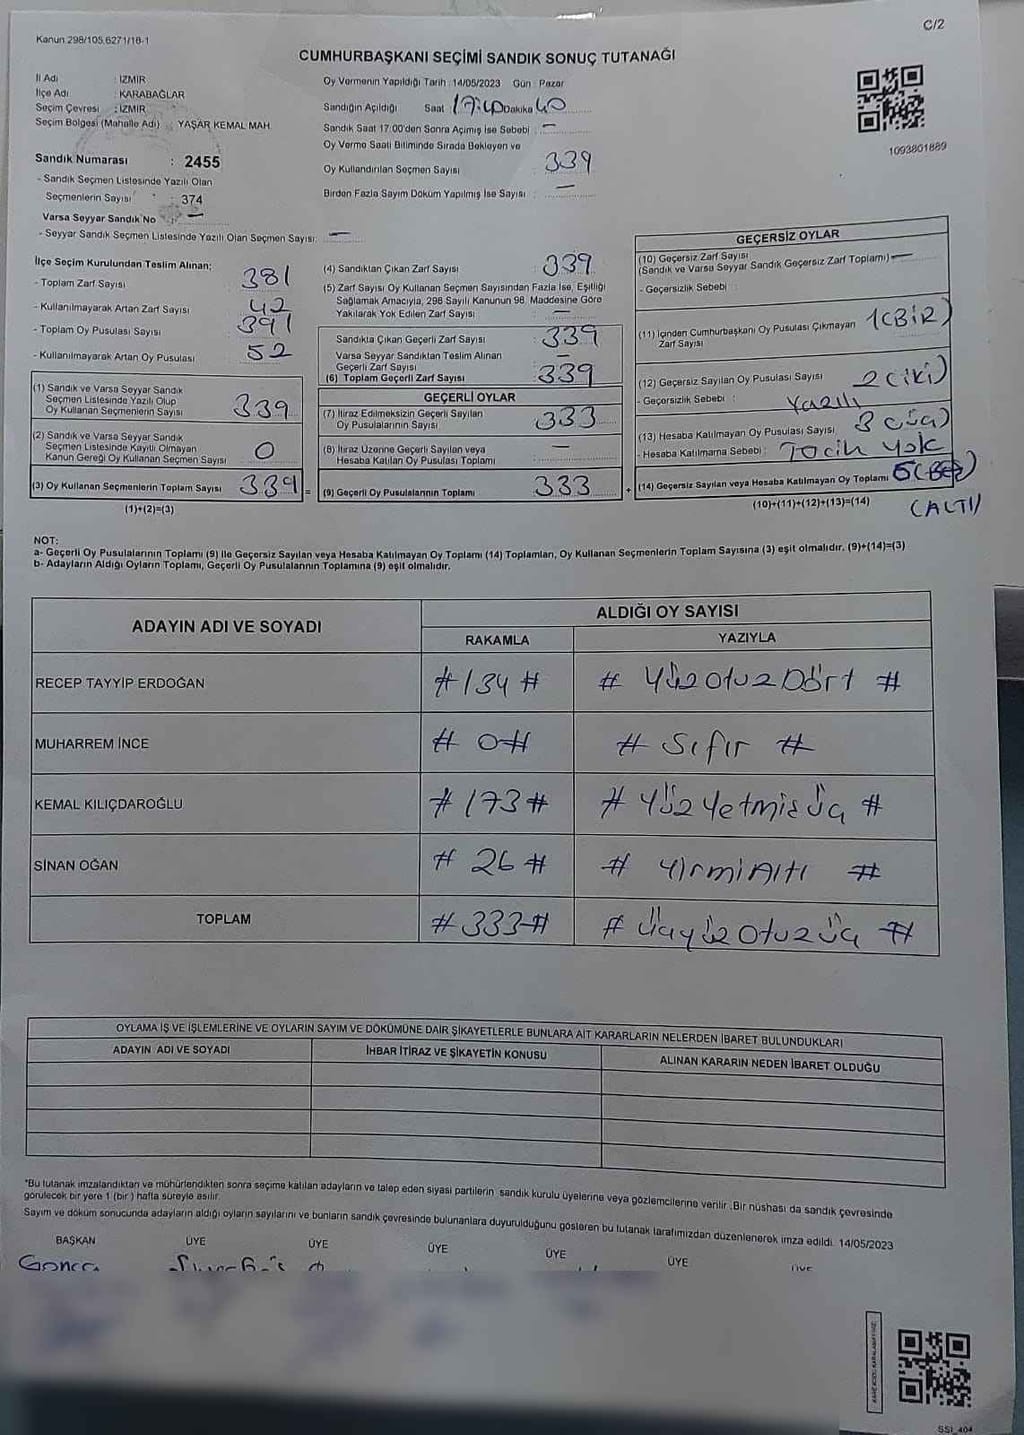 C/2
Kanun 298/105,6271/16-1
CUMHURBAŞKANI SEÇİMİ SANDIK SONUÇ TUTANAĞI
İl Adı : İZMİR
İlçe Adı : KARABAĞLAR
Seçim Çevresi : İZMİR
Seçim Bölgesi (Mahalle Adı) YAŞAR KEMAL MAH.
Sandık Numarası : 2455
- Sandık Seçmen Listesinde Yazılı Olan
Seçmenlerin Sayısı 374
Varsa Seyyar Sandık No —
- Seyyar Sandık Seçmen Listesinde Yazılı Olan Seçmen Sayısı: —
Oy Vermenin Yapıldığı Tarih : 14/05/2023 Gün : Pazar
Sandığın Açıldığı Saat 17:40 Dakika 40
Sandık Saat 17:00'den Sonra Açılmış İse Sebebi —
Oy Verme Saati Bitiminde Sırada Bekleyen ve
Oy Kullandırılan Seçmen Sayısı : 339
Birden Fazla Sayım Döküm Yapılmış İse Sayısı : —
1093801889
İlçe Seçim Kurulundan Teslim Alınan:
- Toplam Zarf Sayısı 381
- Kullanılmayarak Artan Zarf Sayısı 42
- Toplam Oy Pusulası Sayısı 391
- Kullanılmayarak Artan Oy Pusulası 52
(1) Sandık ve Varsa Seyyar Sandık
Seçmen Listesinde Yazılı Olup
Oy Kullanan Seçmenlerin Sayısı 339
(2) Sandık ve Varsa Seyyar Sandık
Seçmen Listesinde Kayıtlı Olmayan
Kanun Gereği Oy Kullanan Seçmen Sayısı 0
(3) Oy Kullanan Seçmenlerin Toplam Sayısı 339 =
(1)+(2)=(3)
(4) Sandıktan Çıkan Zarf Sayısı : 339
(5) Zarf Sayısı Oy Kullanan Seçmen Sayısından Fazla İse, Eşitliği
Sağlamak Amacıyla, 298 Sayılı Kanunun 98. Maddesine Göre
Yakılarak Yok Edilen Zarf Sayısı : —
Sandıkta Çıkan Geçerli Zarf Sayısı : 339
Varsa Seyyar Sandıktan Teslim Alınan
Geçerli Zarf Sayısı : —
(6) Toplam Geçerli Zarf Sayısı : 339
GEÇERLİ OYLAR
(7) İtiraz Edilmeksizin Geçerli Sayılan
Oy Pusulalarının Sayısı : 333
(8) İtiraz Üzerine Geçerli Sayılan veya
Hesaba Katılan Oy Pusulası Toplamı : —
(9) Geçerli Oy Pusulalarının Toplamı : 333 +
GEÇERSİZ OYLAR
(10) Geçersiz Zarf Sayısı
(Sandık ve Varsa Seyyar Sandık Geçersiz Zarf Toplamı) —
- Geçersizlik Sebebi :
(11) İçinden Cumhurbaşkanı Oy Pusulası Çıkmayan
Zarf Sayısı 1(BİR)
(12) Geçersiz Sayılan Oy Pusulası Sayısı 2(iki)
- Geçersizlik Sebebi : Yazılı
(13) Hesaba Katılmayan Oy Pusulası Sayısı 3 (üç)
- Hesaba Katılmama Sebebi : Tercih yok
(14) Geçersiz Sayılan veya Hesaba Katılmayan Oy Toplamı
(10)+(11)+(12)+(13)=(14)
(ALTI)
NOT:
a- Geçerli Oy Pusulalarının Toplamı (9) İle Geçersiz Sayılan veya Hesaba Katılmayan Oy Toplamı (14) Toplamları, Oy Kullanan Seçmenlerin Toplam Sayısına (3) eşit olmalıdır. (9)+(14)=(3)
b- Adayların Aldığı Oyların Toplamı, Geçerli Oy Pusulalarının Toplamına (9) eşit olmalıdır.
ADAYIN ADI VE SOYADI
ALDIĞI OY SAYISI
RAKAMLA YAZIYLA
RECEP TAYYİP ERDOĞAN # 134 # # Yüz Otuz Dört #
MUHARREM İNCE # 0 # # Sıfır #
KEMAL KILIÇDAROĞLU # 173 # # Yüz Yetmiş Üç #
SİNAN OĞAN # 26 # # Yirmi Altı #
TOPLAM # 333 # # Üçyüz Otuz üç #
OYLAMA İŞ VE İŞLEMLERİNE VE OYLARIN SAYIM VE DÖKÜMÜNE DAİR ŞİKAYETLERLE BUNLARA AİT KARARLARIN NELERDEN İBARET BULUNDUKLARI
ADAYIN ADI VE SOYADI İHBAR İTİRAZ VE ŞİKAYETİN KONUSU ALINAN KARARIN NEDEN İBARET OLDUĞU
*Bu tutanak imzalandıktan ve mühürlendikten sonra seçime katılan adayların ve talep eden siyasi partilerin sandık kurulu üyelerine veya gözlemcilerine verilir. Bir nüshası da sandık çevresinde
görülecek bir yere 1 (bir) hafta süreyle asılır.
Sayım ve döküm sonucunda adayların aldığı oyların sayılarını ve bunların sandık çevresinde bulunanlara duyurulduğunu gösteren bu tutanak tarafımızdan düzenlenerek imza edildi. 14/05/2023
BAŞKAN ÜYE ÜYE ÜYE ÜYE ÜYE ÜYE
SSİ_404